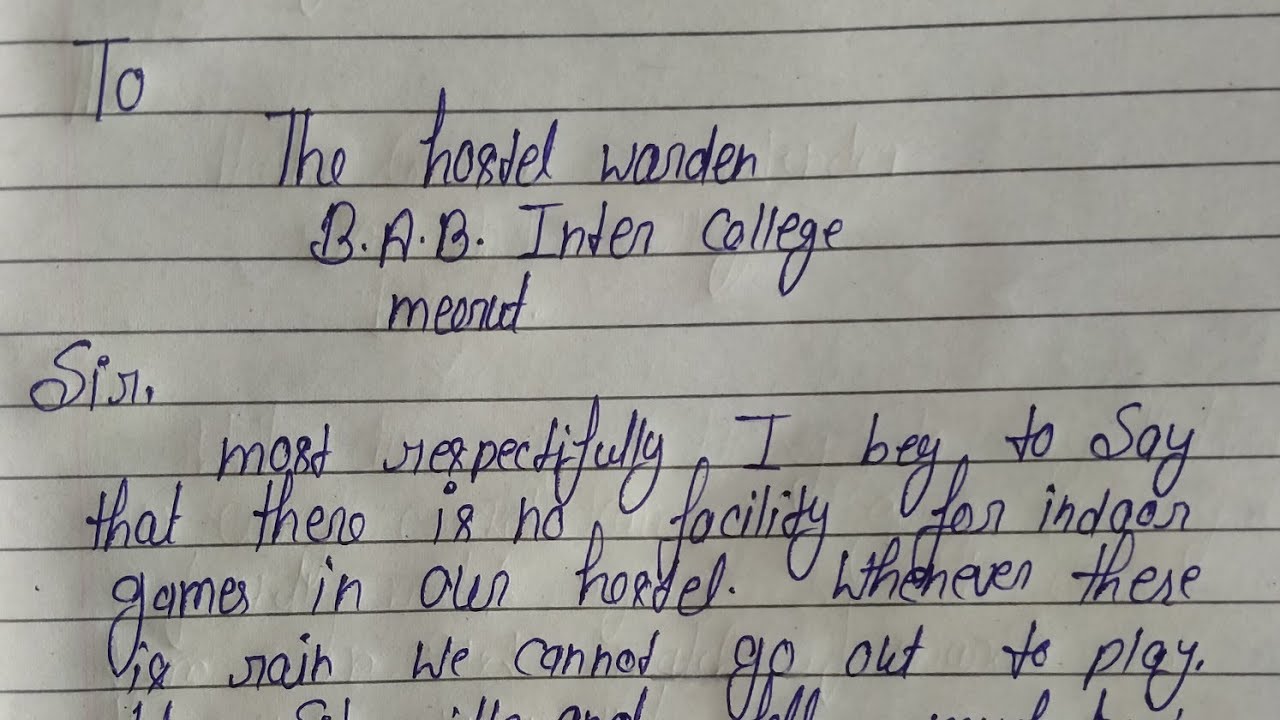 To
The hostel warden
B.A.B. Inter College
meerut
Sir.
most respectifully, I beg, to Say
that there is no, facility for indoor
games in our hostel. Whenever there
is rain we cannot go out to play.